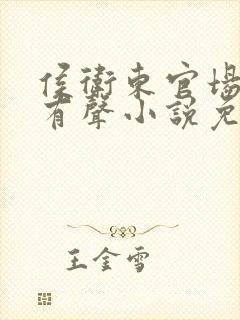 侯衛東官場
有聲小説免
王金雪